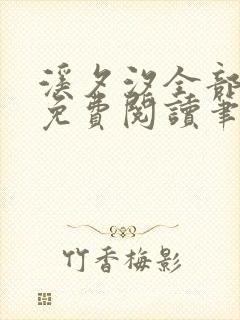 溪夕汐全部
免費閱讀筆
竹香梅影